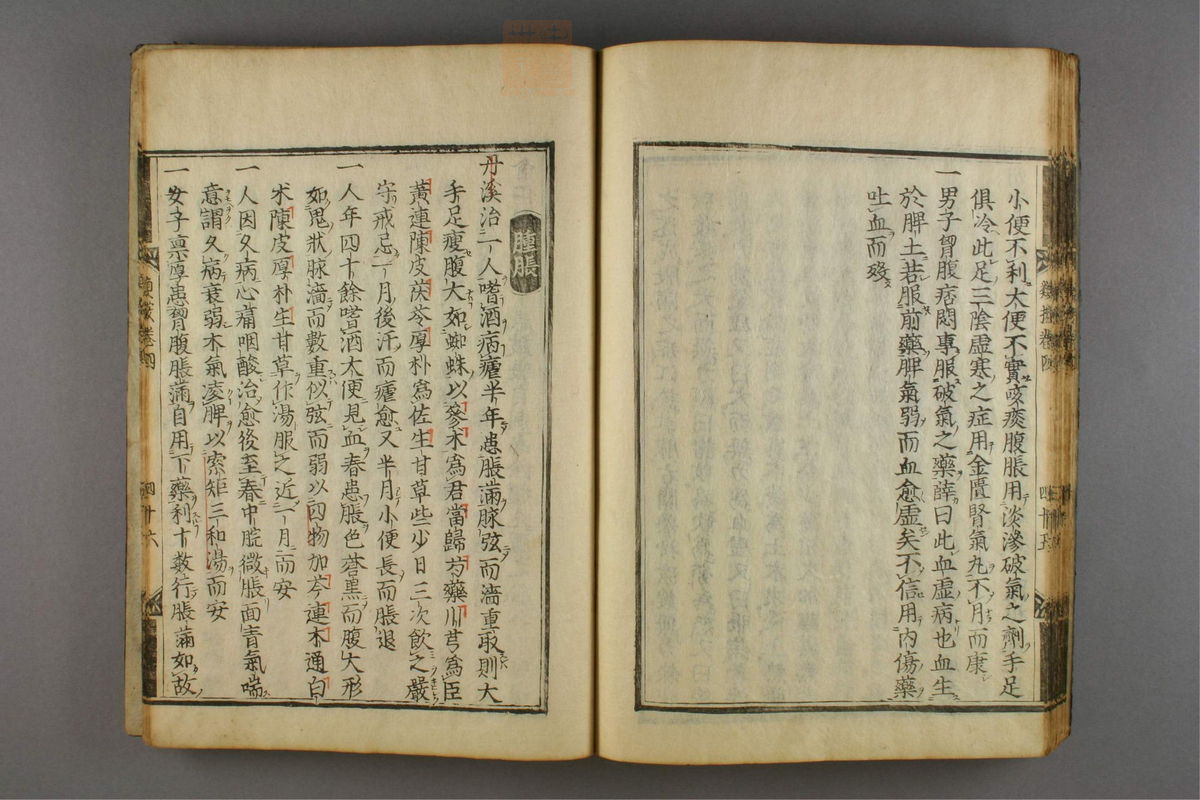 小便不利大便不實咳痰腹脹用淡滲破氣之劑手足
俱冷此足三陰虛寒之症用金匱腎氣丸不月而康
一男子胷腹痞悶專服破氣之藥薛曰此血虛病也血生
於脾土若服前藥脾氣弱而血愈虛矣不信用內傷藥
吐血而歿
四十五
腫脹
丹溪治一人嗜酒病瘧半年患脹滿脉弦而濇重取則大
手足瘦腹大如蜘蛛以參朮爲君當歸芍藥川芎爲臣
黃連陳皮茯苓厚朴爲佐生甘草些少日三次飲之嚴
守戒忌一月後汗而瘧愈又半月小便長而脹退
一人年四十餘嗜酒大便見血春患脹色蒼黑而腹大形
如鬼狀脉濇而數重似弦而弱以四物加芩連木通白
朮陳皮厚朴生甘草作湯服之近一月而安
一人因久病心痛咽酸治愈後至春中脘微脹面青氣喘
意謂久病衰弱木氣凌脾以索矩三和湯而安
一女子禀厚患胷腹脹滿自用下藥利十數行脹滿如故
卷四
四十六